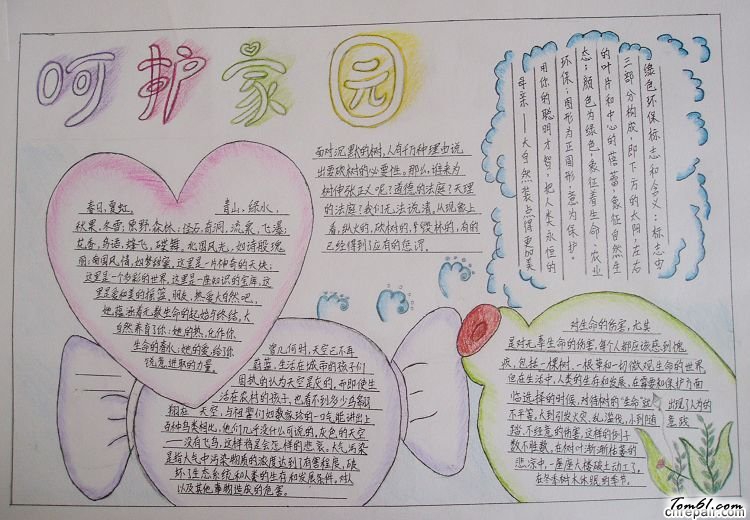 呵护家园
面对沉默的树,人有千万种理由说
出要砍树的必要性。那么,谁来为
树伸张正义呢?道德的法庭?天理
的法庭?我们无法说清,从现象上
看,纵火的,砍树的,
已经得到了应有的惩罚。
绿色环保标志和含义:标志由
三部分构成,即下方的太阳,左右
的叶片和中心的蓓蕾,象征自然生
态;颜色为绿色,象征着生命,农业
环保;图形为正圆形,意为保护。
用你的聪明才智,把人类永恒的
母亲——大自然装点得更加美
春日,夏虹 青山,绿水,
秋果,冬雪,原野,森林;怪石,奇洞,流泉,飞瀑;
花香,鸟语,蜂飞,蝶舞,北国风光,如诗般瑰
丽;南国风情,如梦甜蜜,这里是一片神奇的天地;
这里是一个多彩的世界,这里是一座知识的宝库,这
里是爱和美的摇篮,朋友,热爱大自然吧,
她蕴涵着无数生命的起始与终结,大
自然养育了你;她的热,化作你
生命的春水;她的爱,给了你
锐意进取的力量。
曾几何时,天空已不再
蔚蓝,生活在城市的孩子们
固执的认为天空是灰的,而即使生
活在农村的孩子,也看不到多少鸟翱
翔在天空,与祖辈们如数家珍的一口气能讲出上
百种鸟类相比,他们几乎没什么可说的,灰色的天空
——没有鸟飞,这样将是会怎样的悲哀。大气污染
是指大气中污染物质的浓度达到了有害程度,破
坏了生态系统和人类的生存和发展条件,对人
以及其他事物造成的危害。
对生命的伤害,尤其
是对无辜生命的伤害,每个人都应该感到愧
疚,包括一棵树,一根草和一切微观生命的世界
但在生活中,人类的生存和发展,在需要和保护方面
临选择的时候,对待树的"生命"就 出现了人为的
不平等,大到引发火灾,乱滥伐,小到随 意践
踏,不经意的伤害,这样的例子
数不胜数,在树叶渐渐枯萎的
悲凉中,一座座大楼破土动工了,
在冬季树木休眠的季节。
Tom61.com
chrepair.com